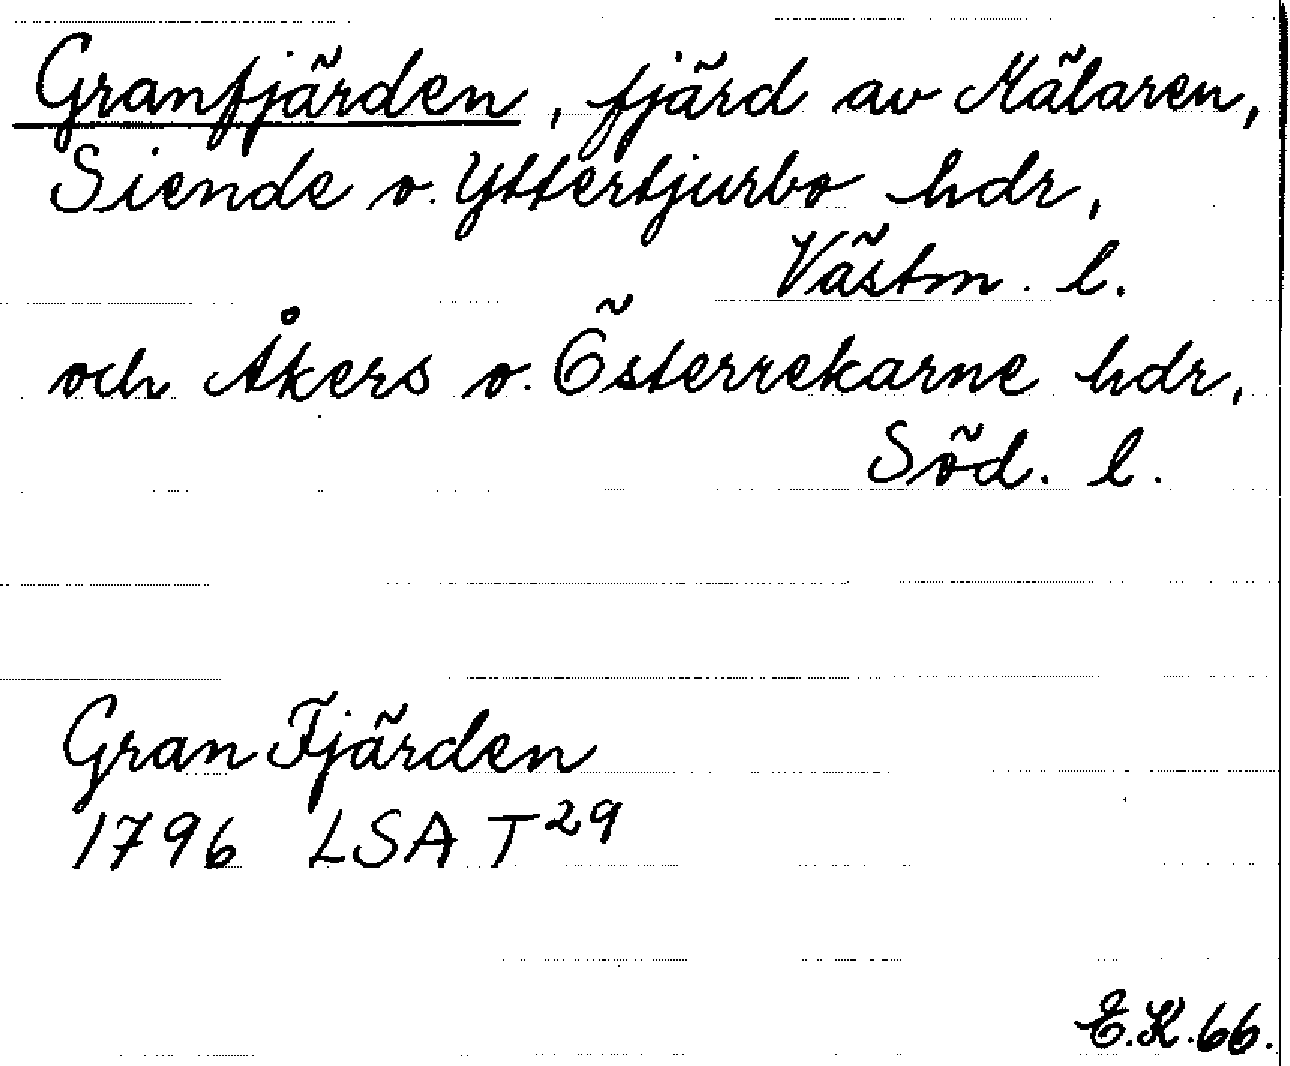 Granfjärden, fjärd av Mälaren,
Siende o. Yttertjurbo hdr,
Västm. l.
och Åkers o. Österrekarne hdr,
Söd. l.
Gran Fjärden
1796 LSA T29
E.K.66.